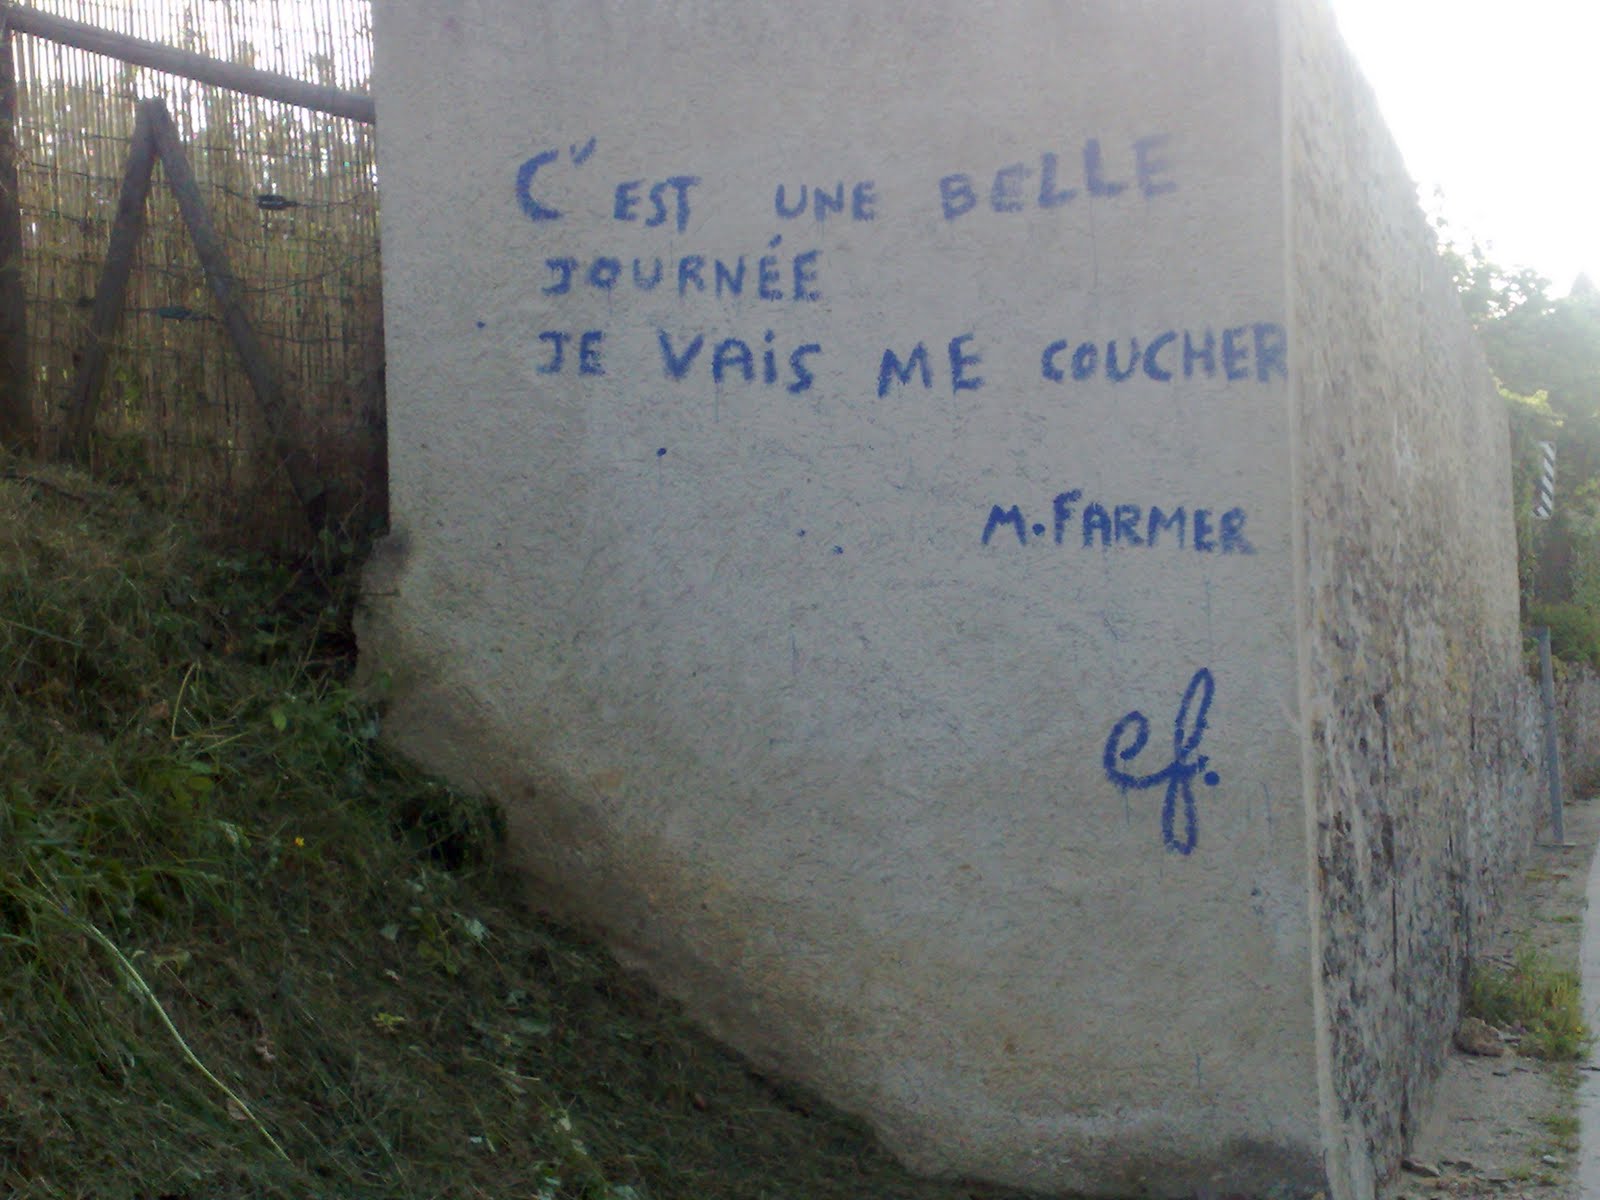 C'EST UNE BELLE
JOURNÉE
JE VAiS ME COUCHER
M. FARMER
ef.